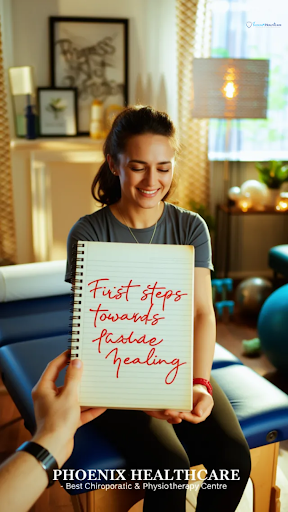 First steps
towards
healing
PHOENIX HEALTHCARE
- Best Chiropratic & Physiotherapy Centre